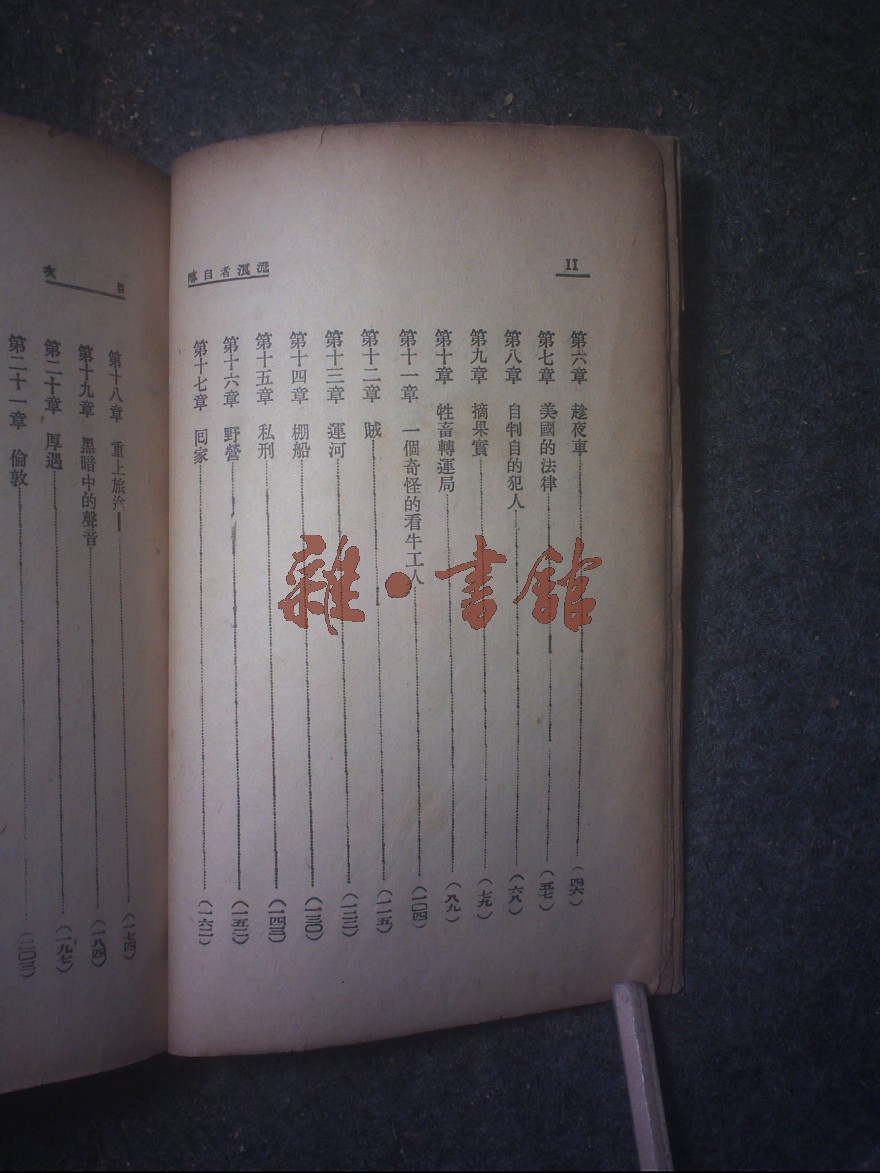 II
流浪者自傳
第六章 趁夜車 (四六)
第七章 美國的法律 (五七)
第八章 自判自的犯人 (六八)
第九章 摘果實 (七九)
第十章 牲畜轉運局 (八九)
第十一章 一個奇怪的看牛工人 (一〇四)
第十二章 賊 (一一五)
第十三章 運河
第十四章 棚船 (一三〇)
第十五章 私刑 (一四三)
第十六章 野營 (一五二)
第十七章 回家 (一六二)
次
第十八章 重上旅 (一七四)
第十九章 黑暗中的聲音 (一八四)
第二十章 厚遇 (一九七)
第二十一章 倫敦 (二〇三)
雜·書館